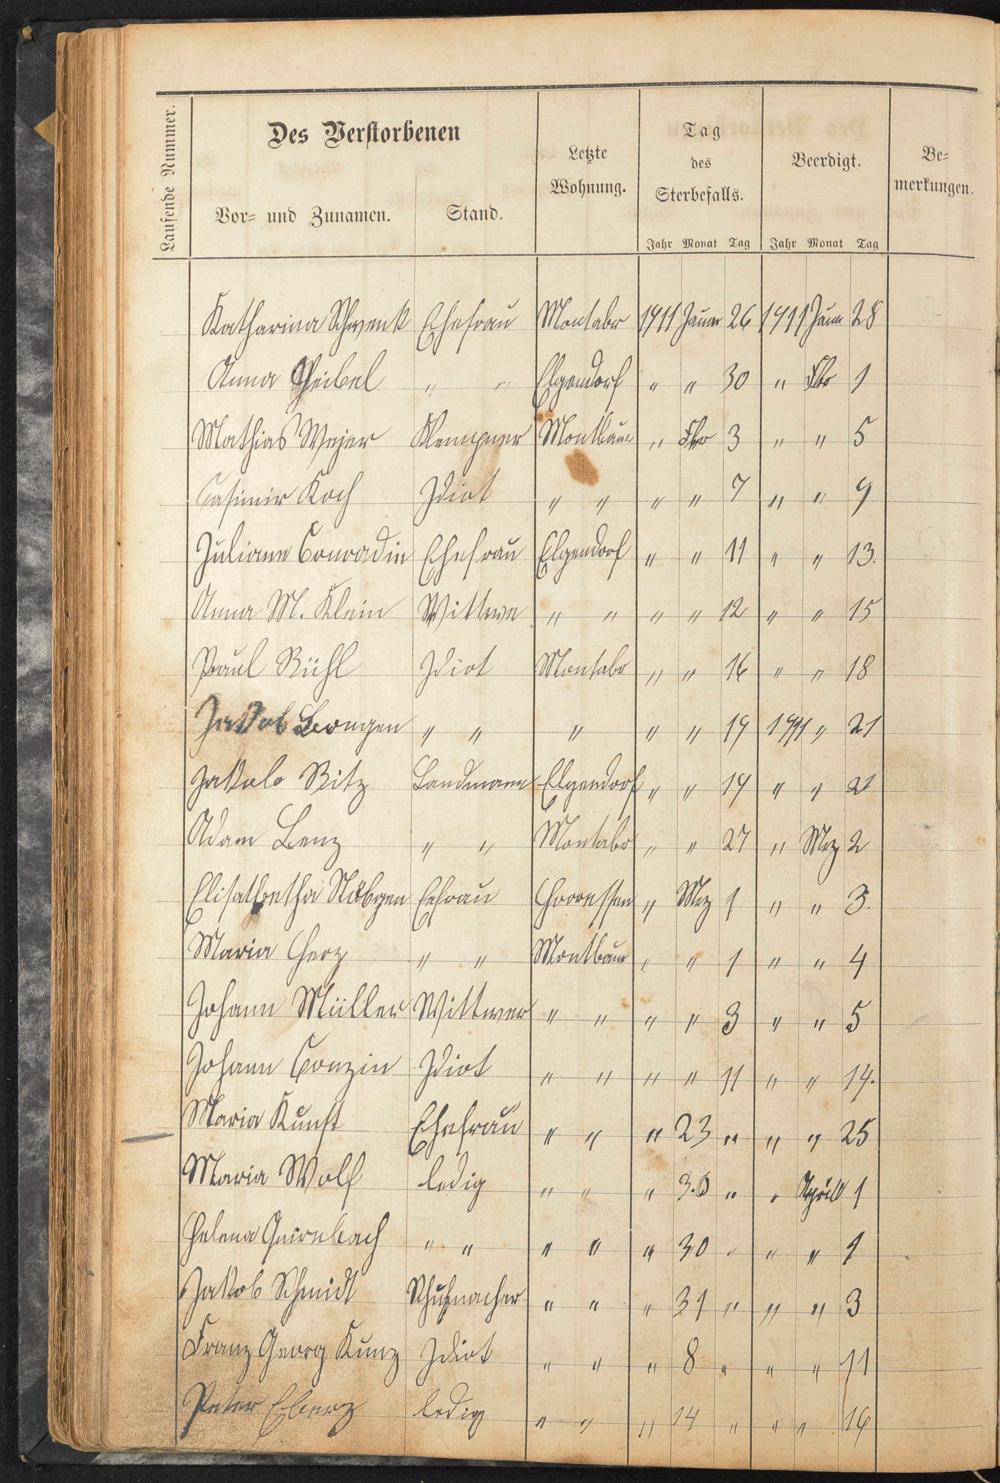 Laufende Nummer.
Des Verstorbenen
Vor- und Zunamen. Stand.
Letzte Wohnung.
Tag des Sterbefalls.
Beerdigt.
Bemerkungen.
Jahr Monat Tag Jahr Monat Tag
Katharina Schwenk Ehefrau Montabr 1911 Januar 26 1911 Janu 28
Anna " " Elgendorf " " 30 " Fbr 1
Mathias Meyer Klempner Montbaur " Fbr 3 " " 5
Casimir Koch Idiot " " " " 7 " " 9
Juliane Conradin Ehefrau Elgendorf " " 11 " " 13.
Anna M. Klein Wittwe " " " " 12 " " 15
Paul Rühl Idiot Montabr " " 16 " " 18
Jakob " " " " " 19 1911 " 21
Jakob Ritz Landmann Elgendorf " " 19 " " 21
Adam Benz " " Montabr " " 27 " Mrz 2
Elisatbetha Nöbgen Eefrau Horressen " Mrz 1 " " 3.
Maria Herz " " Montbaur " " 1 " " 4
Johann Müller Wittwer " " " " 3 " " 5
Johann Conzin Idiot " " " " 11 " " 14.
Maria Kunst Ehefrau " " " 23 " " " 25
Maria Wolf ledig " " " 30 " " April 1
Helena Geirnbach " " " " " 30 " " " 1
Jakob Schmidt Schuhmacher " " " 31 " " " 3
Franz Georg Kunz Idiot " " " 8 " " " 11
Peter Eberz ledig " " " 14 " " " 16